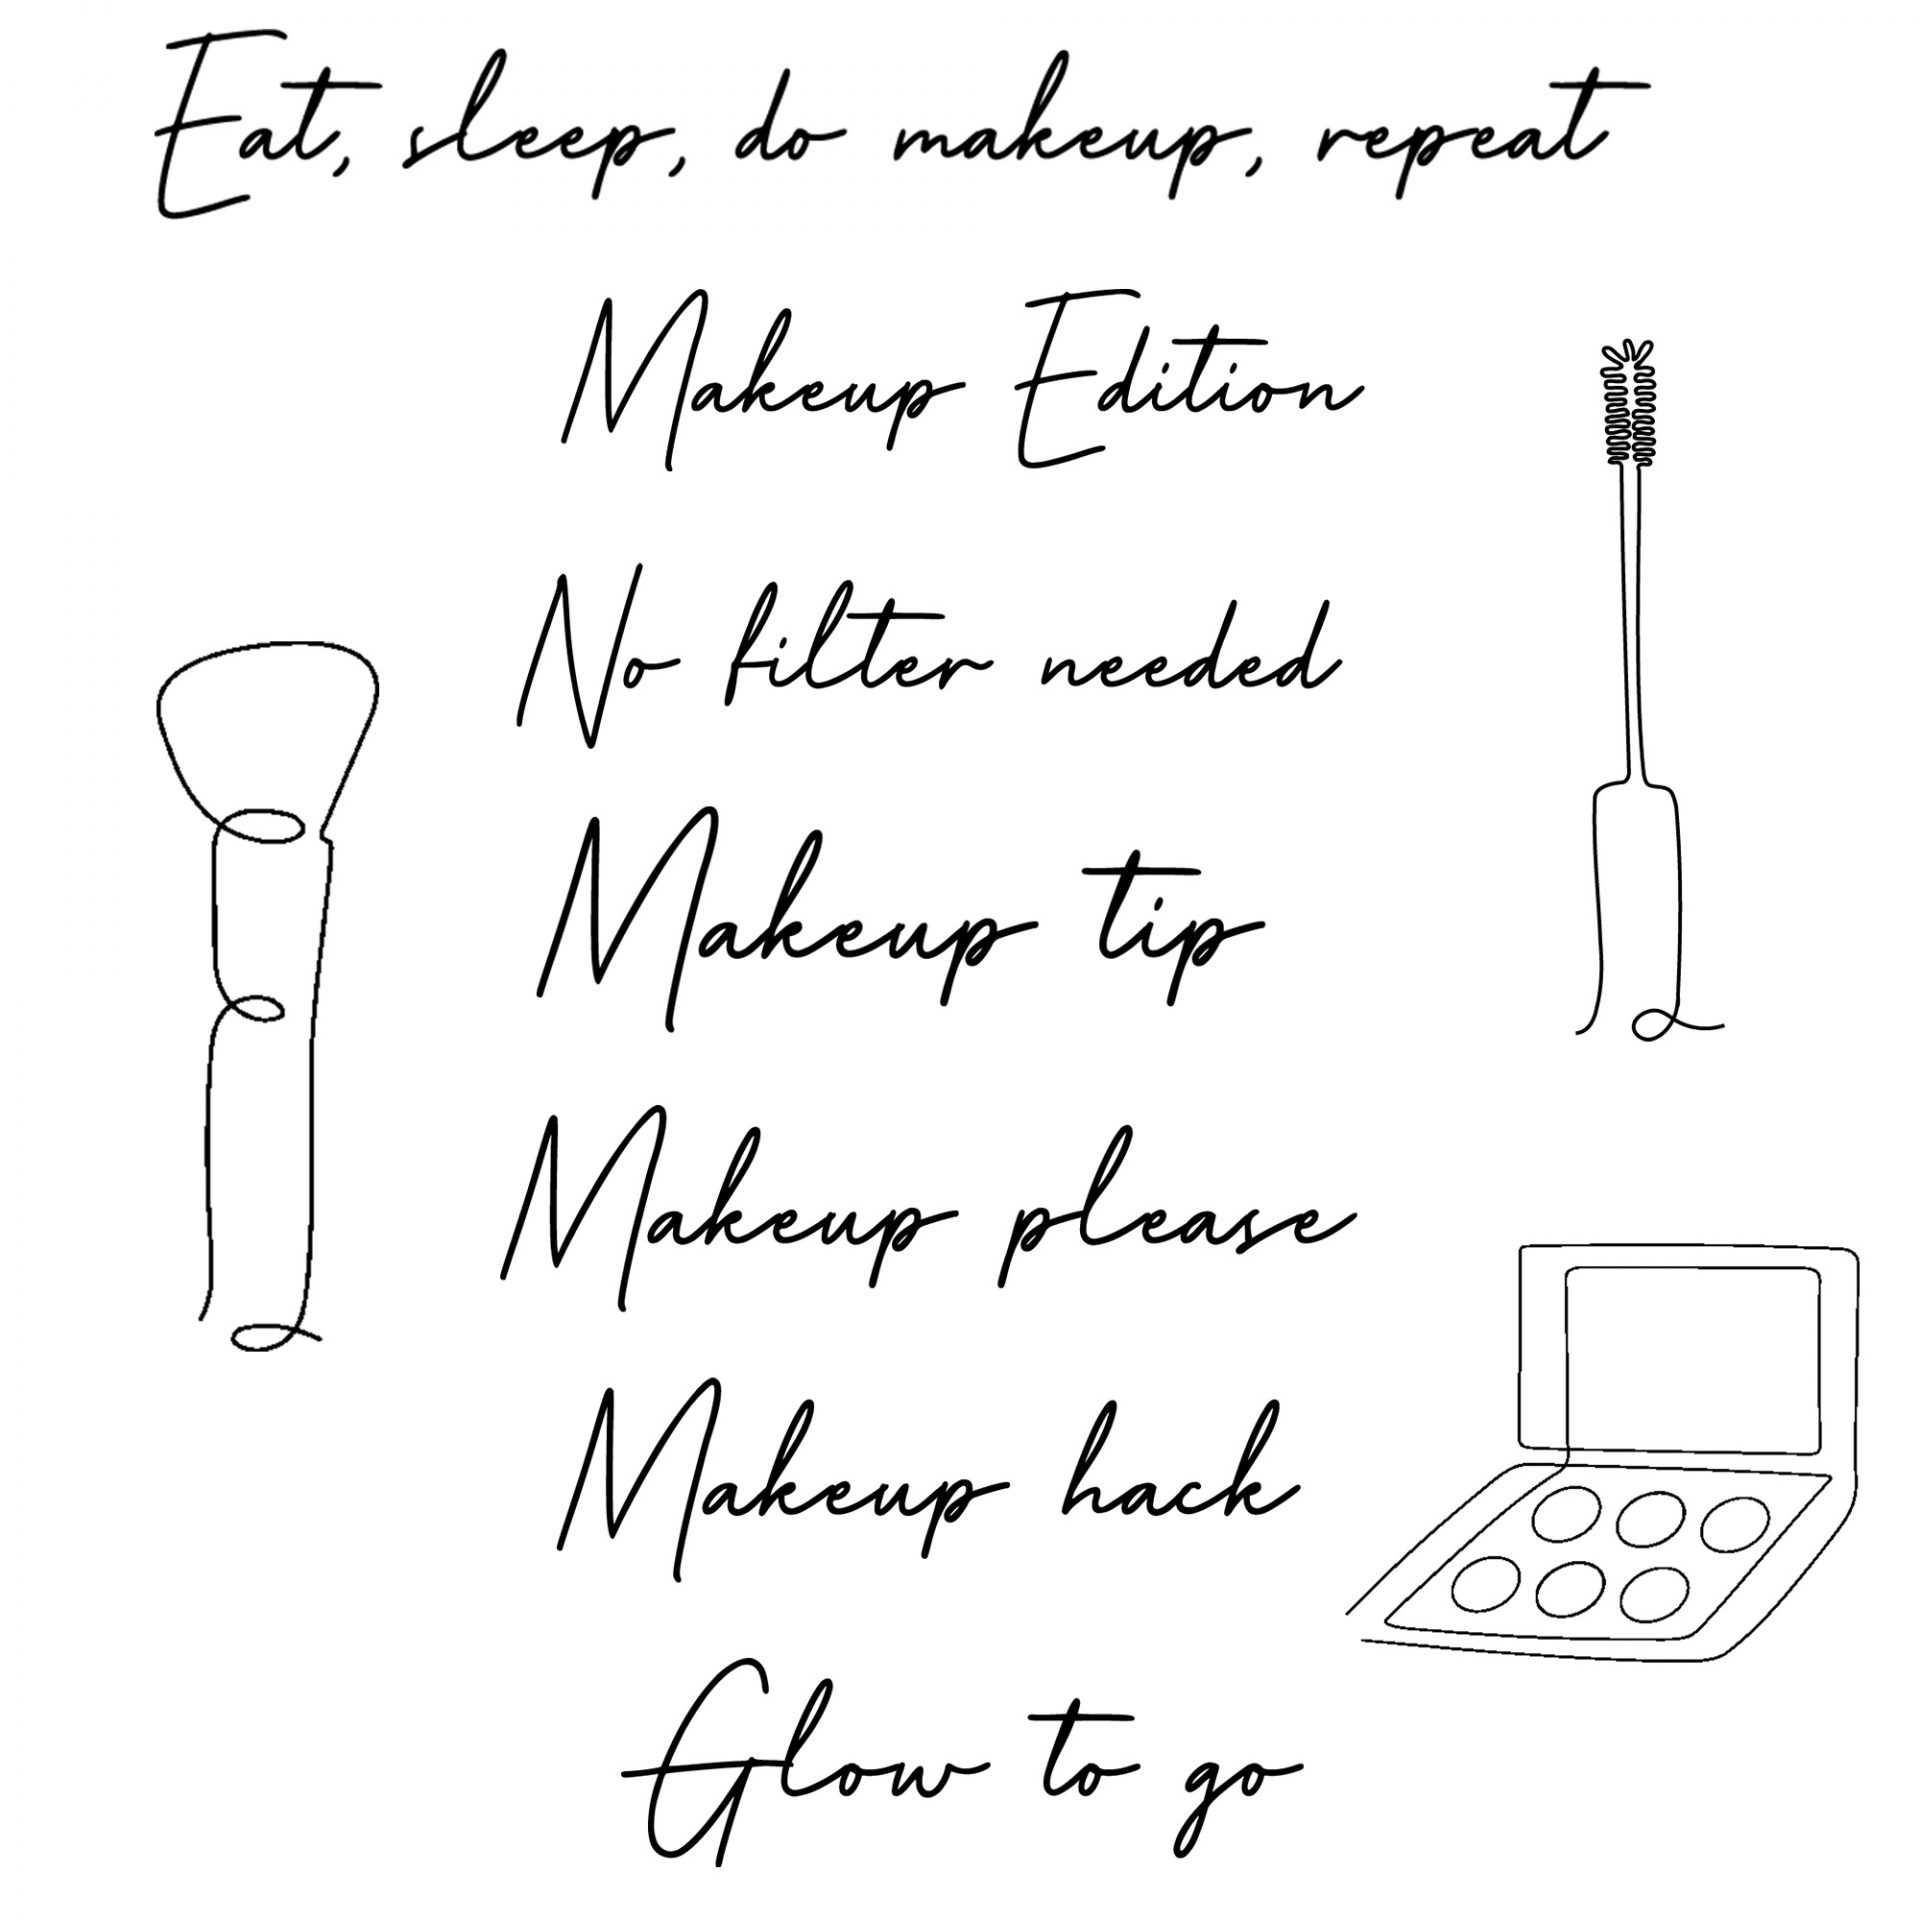 Eat, sleep, do makeup, repeat
Makeup Edition
No filter needed
Makeup tip
Makeup please
Makeup hack
Glow to go